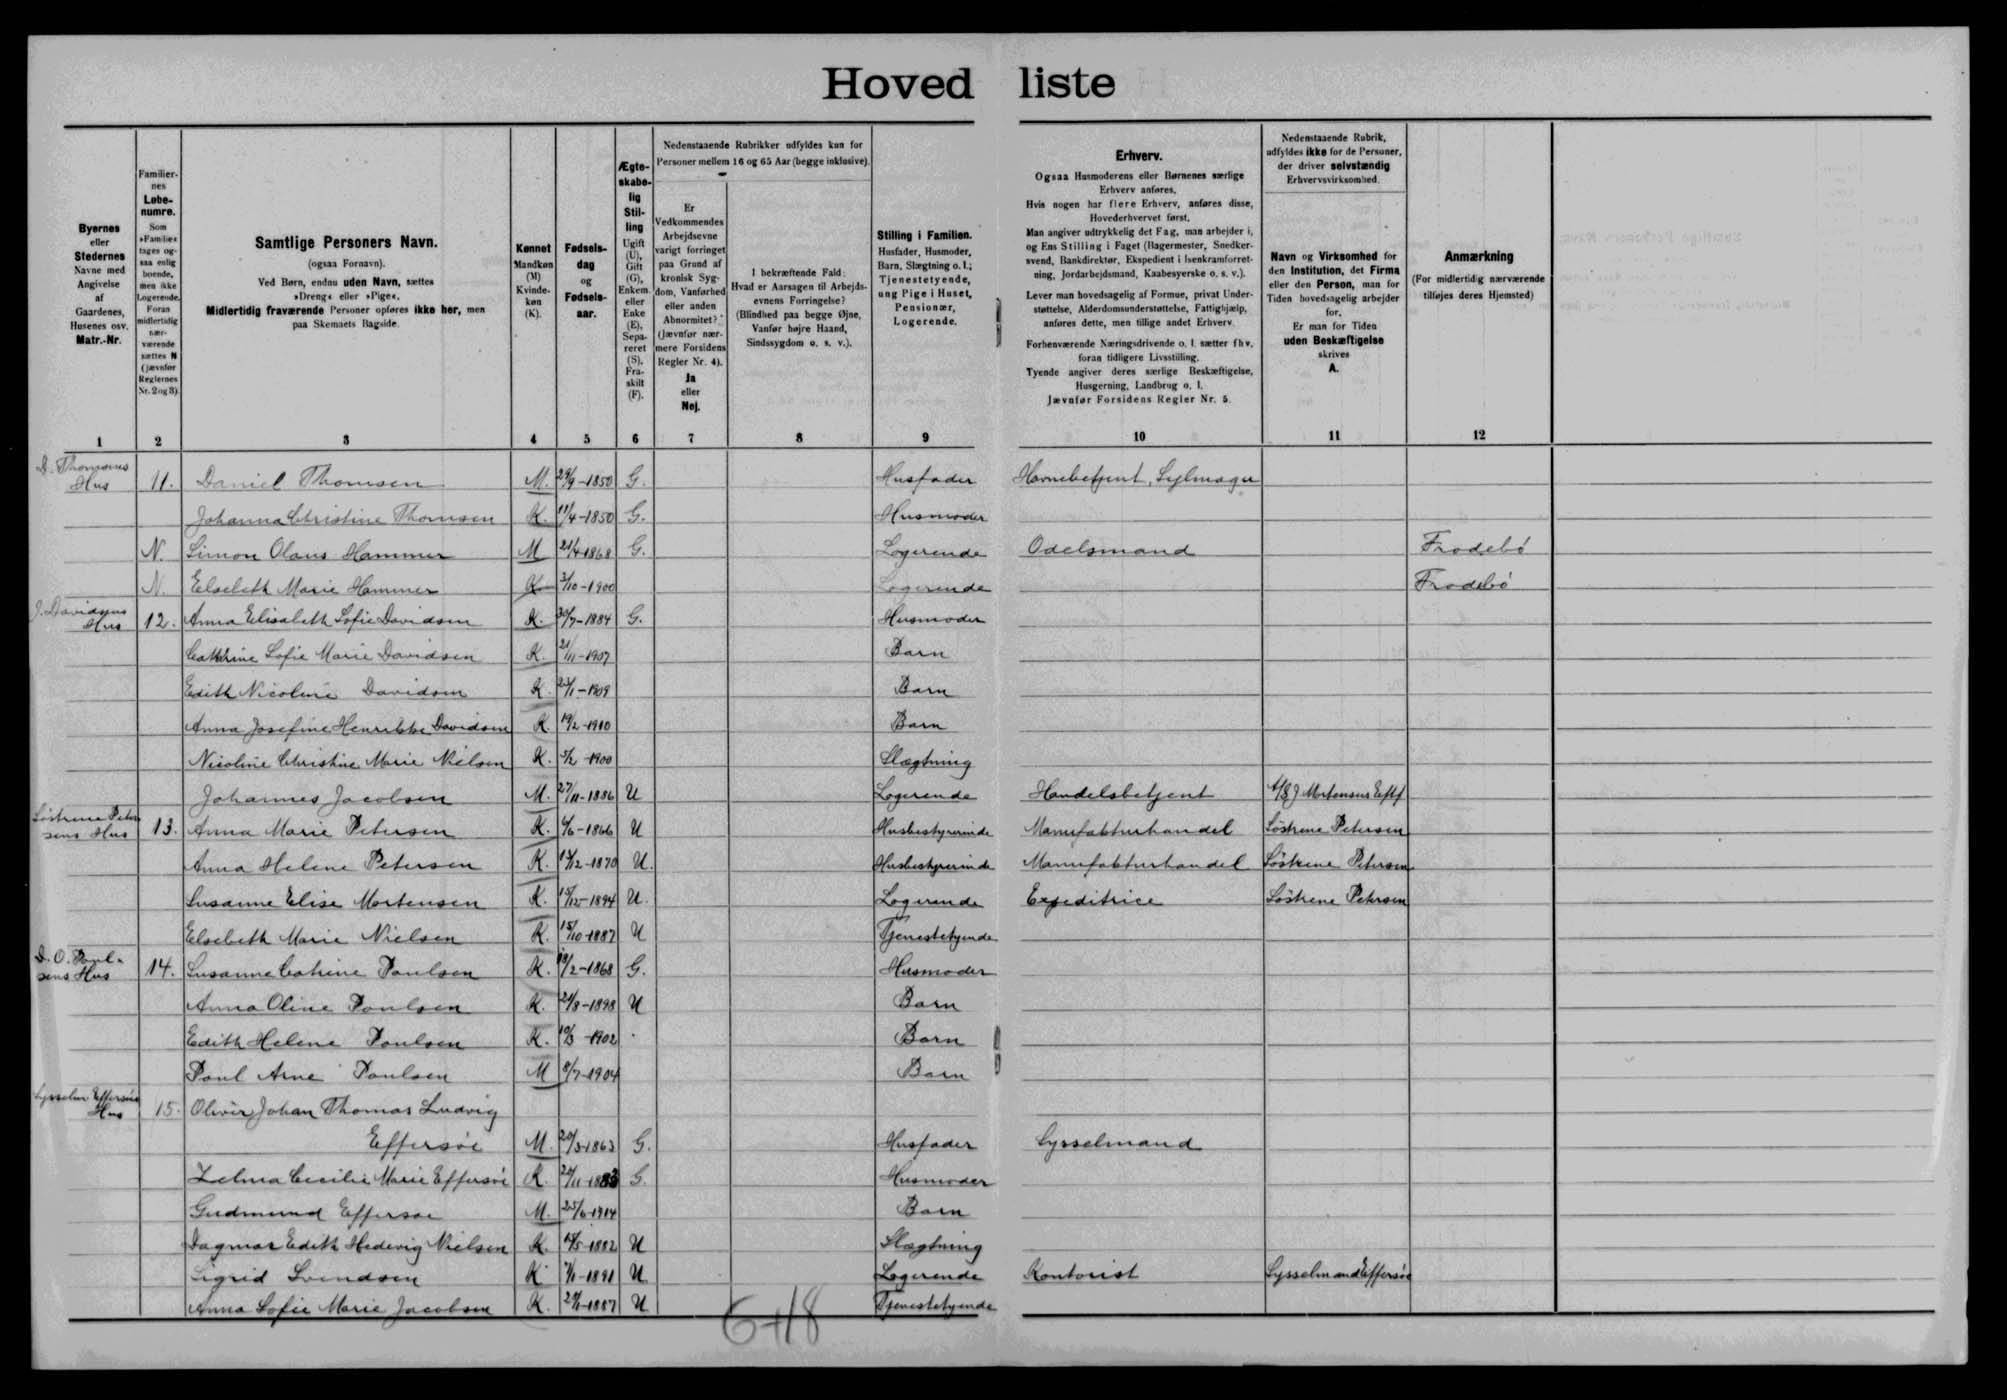 Hovedliste
Nedenstaaende Rubrikker udfyldes kun for
Personer mellem 16 og 65 Aar (begge inklusive).
Byernes
eller
Stedernes
Navne med
Angivelse
af
Gaardenes,
Husenes osv.
Matr.-Nr.
Familier-
nes
Løbe-
numre.
Som
»Familie«
tages og-
saa enlig
boende,
men ikke
Logerende.
Foran
midlertidig
nær-
værende
sættes N
(jævnfør
Reglernes
Nr. 2 og 3).
Samtlige Personers Navn.
(ogsaa Fornavn).
Ved Børn, endnu uden Navn, sættes
»Dreng« eller »Pige«.
Midlertidig fraværende Personer opføres ikke her, men
paa Skemaets Bagside.
Kønnet
Mandkøn
(M)
Kvinde-
køn
(K).
Fødsels-
dag
og
Fødsels-
aar.
Ægte-
skabe-
lig
Stil-
ling
Ugift
(U),
Gift
(G),
Enkem.
eller
Enke
(E),
Sepa-
reret
(S),
Fra-
skilt
(F).
Er
Vedkommendes
Arbejdsevne
varigt forringet
paa Grund af
kronisk Syg-
dom, Vanførhed
eller anden
Abnormitet?
(Jævnfør nær-
mere Forsidens
Regler Nr. 4).
Ja
eller
Nej.
I bekræftende Fald:
Hvad er Aarsagen til Arbejds-
evnens Forringelse?
(Blindhed paa begge Øjne,
Vanfør højre Haand,
Sindssygdom o. s. v.).
Stilling i Familien.
Husfader, Husmoder,
Barn, Slægtning o. l.;
Tjenestetyende,
ung Pige i Huset,
Pensionær,
Logerende.
Erhverv.
Ogsaa Husmoderens eller Børnenes særlige
Erhverv anføres.
Hvis nogen har flere Erhverv, anføres disse,
Hovederhvervet først.
Man angiver udtrykkelig det Fag, man arbejder i,
og Ens Stilling i Faget (Bagermester, Snedker-
svend, Bankdirektør, Ekspedient i Isenkramforret-
ning, Jordarbejdsmand, Kaabesyerske o. s. v.).
Lever man hovedsagelig af Formue, privat Under-
støttelse, Alderdomsunderstøttelse, Fattighjælp,
anføres dette, men tillige andet Erhverv.
Forhenværende Næringsdrivende o. l. sætter fhv.
foran tidligere Livsstilling.
Tyende angiver deres særlige Beskæftigelse,
Husgerning, Landbrug o. l.
Jævnfør Forsidens Regler Nr. 5.
Nedenstaaende Rubrik,
udfyldes ikke for de Personer,
der driver selvstændig
Erhvervsvirksomhed.
Navn og Virksomhed for
den Institution, det Firma
eller den Person, man for
Tiden hovedsagelig arbejder
for.
Er man for Tiden
uden Beskæftigelse
skrives
A.
Anmærkning
(For midlertidig nærværende
tilføjes deres Hjemsted)
1 2 3 4 5 6 7 8 9 10 11 12
D. Thomsens Hus 11. Daniel Thomsen M. 29/9-1850 G. Husfader Havnebetjent, Sejlmager
Johanna Christine Thomsen K. 11/4-1850 G. Husmoder
N. Simon Olaus Hammer M 21/4-1868 G. Logerende Odelsmand Frodebö
N. Elsebeth Marie Hammer K 3/10-1900 Logerende Frodebö
J. Davidsens Hus 12. Anna Elisabeth Sofie Davidsen K. 30/7-1884 G. Husmoder
Cathrine Sofie Marie Davidsen K. 21/11-1907 Barn
Edith Nicoline Davidsen K. 23/1-1909 Barn
Anna Josefine Henrikke Davidsen K. 19/2-1910 Barn
Nicoline Christine Marie Nielsen K. 5/2-1900 Slægtning
Johannes Jacobsen M. 27/11-1886 U Logerende Handelsbetjent A/S J Mortensens Eftf
Söstrene Petersens Hus 13. Anna Marie Petersen K. 6/6-1866 U Husbestyrerinde Manufakturhandel Söstrene Petersen
Anna Helene Petersen K. 13/12-1870 U. Husbestyrerinde Manufakturhandel Söstrene Petersen
Susanne Elise Mortensen K. 15/12-1894 U. Logerende Expeditrice Söstrene Petersen
Elsebeth Marie Nielsen K. 15/10-1887 U Tjenestetyende
D. O. Poulsens Hus 14. Susanne Catrine Poulsen K. 19/2-1868 G. Husmoder
Anna Oline Poulsen K. 24/8-1898 U Barn
Edith Helene Poulsen K. 10/3-1902 Barn
Poul Arne Poulsen M 8/7-1904 Barn
Sysselm Effersøes Hus 15. Oliver Johan Thomas Ludvig
Effersöe M. 20/3-1863 G. Husfader Sysselmand
Zelma Cecilie Marie Effersöe K. 24/11-1883 G. Husmoder
Gudmund Effersøe M. 25/6-1914 Barn
Dagmar Edith Hedevig Nielsen K. 14/5-1882 U Slægtning
Sigrid Svendsen K 7/1-1891 U Logerende Kontorist Sysselmand Effersöe
Anna Sofie Marie Jacobsen K. 29/1-1887 U Tjenestetyende
6+18